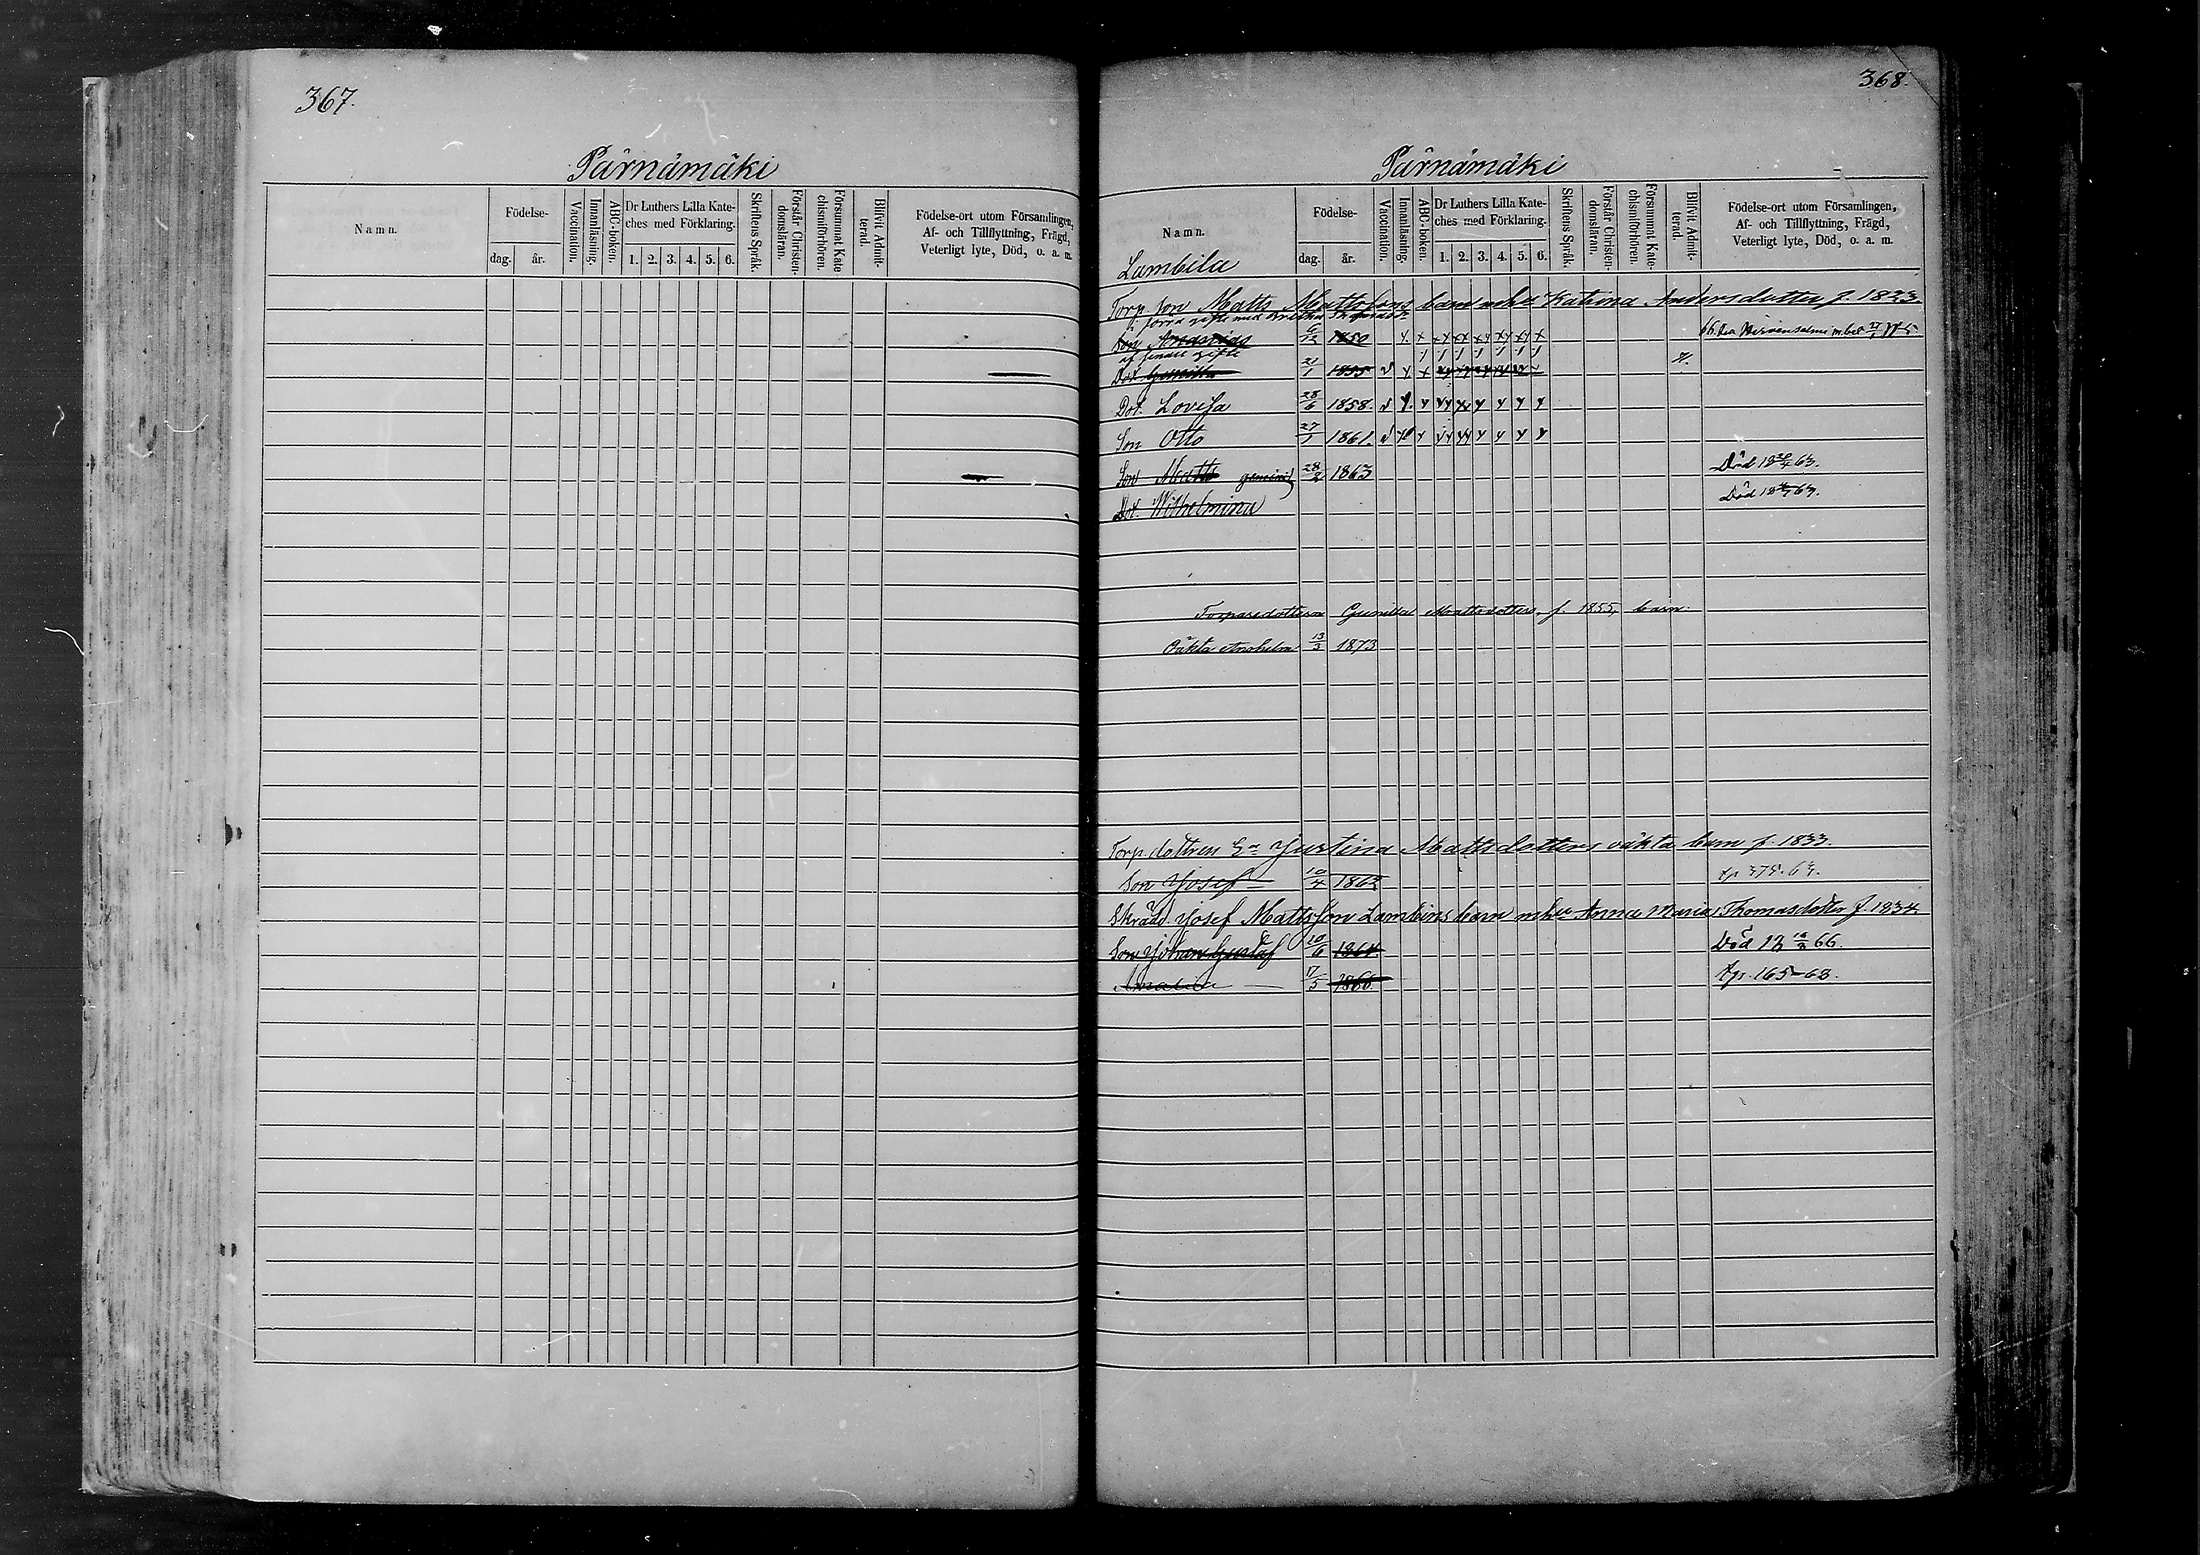 367.
Pärnämäki
Namn.
Födelse-
dag.
år.
Vaccination.
Innanläsning.
ABC-boken.
Dr Luthers Lilla Kate-
ches med Förklaring.
1. 2. 3. 4. 5. 6.
Skriftens Språk.
Förstår Christen-
domsläran.
Försummat Kate
chismiförhören.
Blifvit Admit-
terad.
Födelse-ort utom Församlingen,
Af- och Tillflyttning, Frägd,
Veterligt lyte, Död, o. a. m.
368.
Pärnämäki
Namn.
Lambila
Födelse-
dag.
år.
Vaccination.
Innanläsning.
ABC-boken.
Dr Luthers Lilla Kate-
ches med Förklaring.
1. 2. 3. 4. 5. 6.
Skriftens Språk.
Förstår Christen-
domsläran.
Försummat Kate-
chismiförhören.
Blifvit Admit-
terad.
Födelse-ort utom Församlingen,
Af- och Tillflyttning, Frägd,
Veterligt lyte, Död, o. a. m.
Torp. son Matts Mattssons barn Katrina Andersdotter f. 1823
förra gifte med
Son Andreas 6/12 1850
af senare gifte
Dot. Gunilla 21/1 1855
Dot. Lovisa 28/6 1858.
Son Otto 27/1 1861.
Son Matts gemini 28/2 1863 Död 63.
Dot. Wilhelmina Död 63.
Torparedotteren Gunilla Mattsdotters f. 1855, barn.
Oäkta Ansholm 13/3 1873
Torp. dottren Justina Mattsdotters oäkta barn f. 1833.
Son Josef 10/4 1862
Skrädd. Josef Mattsson Lambins barn Anna Maria Thomasdotter f. 1834
Son Johan Gustaf 10/6 1864. Död 66.
Amalia 17/5 1866. tp. 165-68.